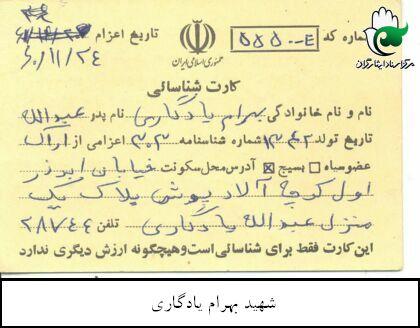 شماره کد ۵۵۵۰-E
جمهوری اسلامی ایران
تاریخ اعزام
۶۰/۱۱/۲۴
مرکز اسناد ایثارگران
کارت شناسائی
نام و نام خانوادگی بهرام یادگاری نام پدر عبدالله
تاریخ تولد ۱۳۴۲ شماره شناسنامه ۳۰۳ اعزامی از اراک
عضو سپاه □ بسیج ☒ آدرس محل سکونت خیابان ابوذر
اول کوچه آلاد پوش پلاک یک
منزل عبدالله یادگاری تلفن ۲۸۷۴۴
این کارت فقط برای شناسائی است و هیچگونه ارزش دیگری ندارد
شهید بهرام یادگاری